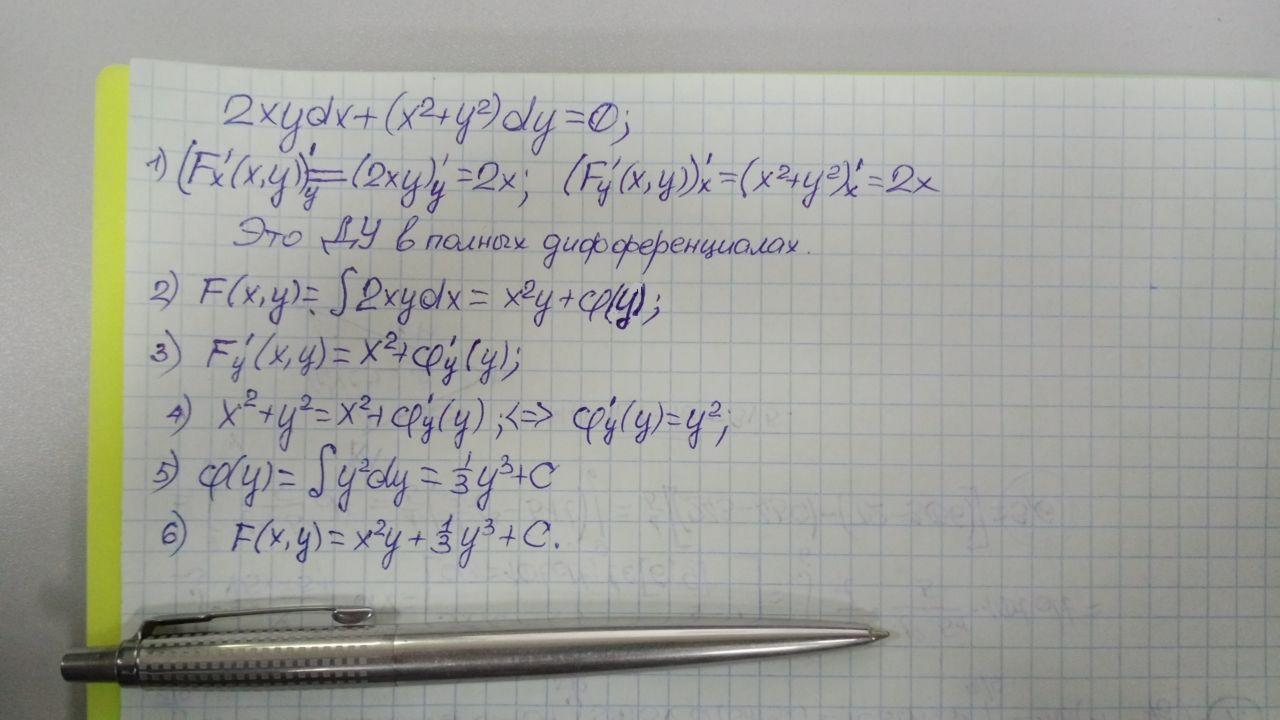 2xydx+(x²+y²)dy=0;
1) (F'ₓ(x,y))'ᵧ=(2xy)'ᵧ=2x; (F'ᵧ(x,y))'ₓ=(x²+y²)'ₓ=2x
Это ДУ в полных дифференциалах.
2) F(x,y)= ∫2xydx= x²y+φ(y);
3) F'ᵧ(x,y)= x²+φ'ᵧ(y);
4) x²+y²=x²+φ'ᵧ(y);<=> φ'ᵧ(y)=y²;
5) φ(y)= ∫y²dy= 1/3 y³+C
6) F(x,y)= x²y+ 1/3 y³+C.